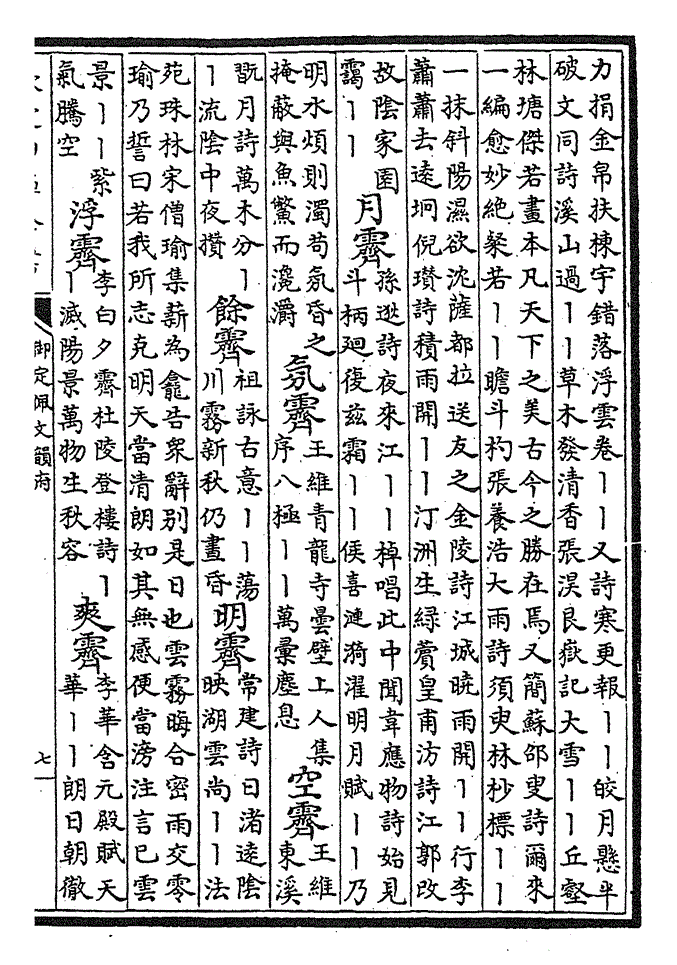 力捐金帛扶棟宇錯落浮雲卷丨丨又詩寒更報丨丨皎月懸平
破文同詩溪山過丨丨草木發清香張淏艮嶽記大雪丨丨丘壑
林塘傑若畫本凡天下之美古今之勝在焉又簡蘇邵叟詩爾來
一編愈妙絕粲若丨丨瞻斗杓張養浩大雨詩須臾林杪標丨丨
一抹斜陽濕欲沈薩都拉送友之金陵詩江城曉雨開丨丨行李
蕭蕭去遠坰倪瓚詩積雨開丨丨汀洲生綠薲皇甫汸詩江郭改
故陰家園
靄丨丨
月霽
孫逖詩夜來江丨丨棹唱此中聞韋應物詩始見
斗柄廻復茲霜丨丨侯喜漣漪濯明月賦丨丨乃
明水煩則濁苟氛昏之
掩蔽與魚鱉而瀺灂
氛霽
王維青龍寺曇壁上人集
序八極丨丨萬彙塵息
空霽
王維
東溪
翫月詩萬木分丨
丨流陰中夜攢
餘霽
祖詠古意丨丨蕩
川霧新秋仍晝昏
明霽
常建詩日渚遠陰
映湖雲尚丨丨法
苑珠林宋僧瑜集薪為龕告衆辭別是日也雲霧晦合密雨交零
瑜乃誓曰若我所志克明天當清朗如其無感便當滂注言已雲
景丨丨紫
氣騰空
浮霽
李白夕霽杜陵登樓詩丨
丨滅陽景萬物生秋容
爽霽
李華含元殿賦天
華丨丨朗日朝徹
御定佩文韻府
七